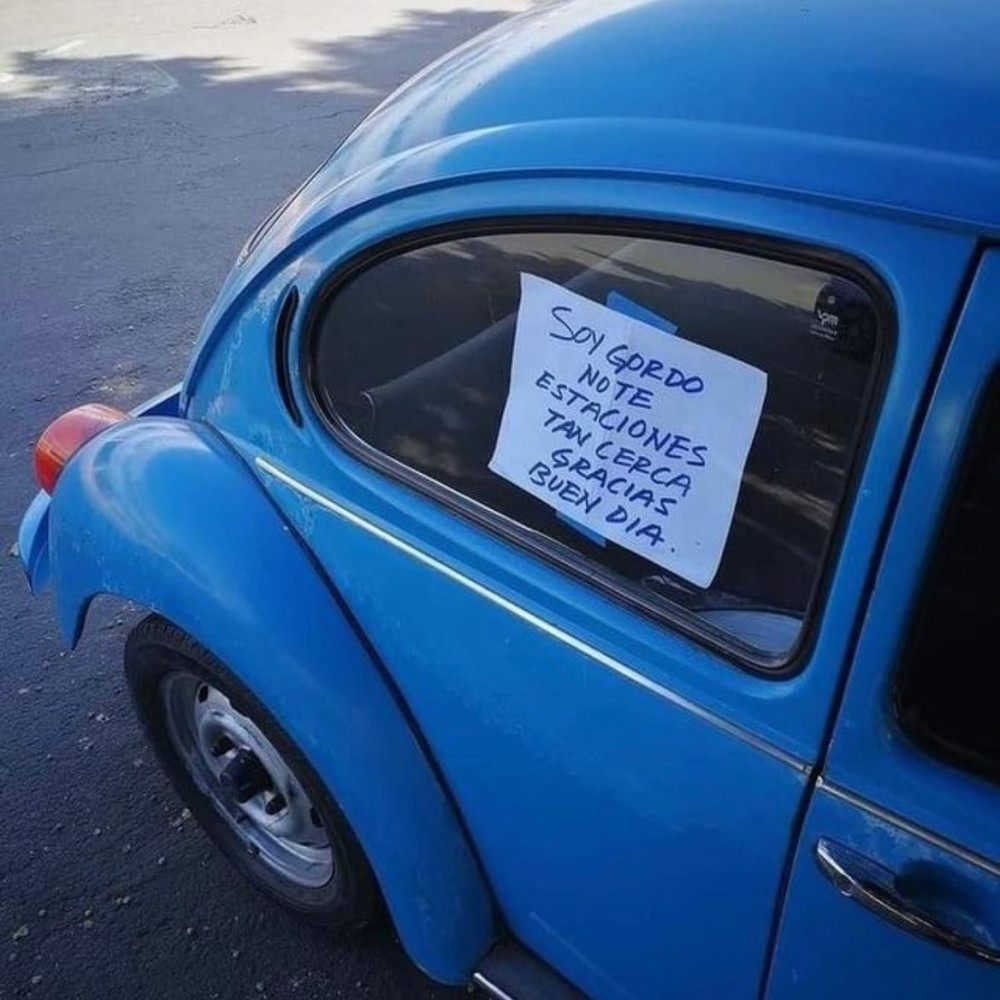 SOY GORDO
NO TE
ESTACIONES
TAN CERCA
GRACIAS
BUEN DIA.